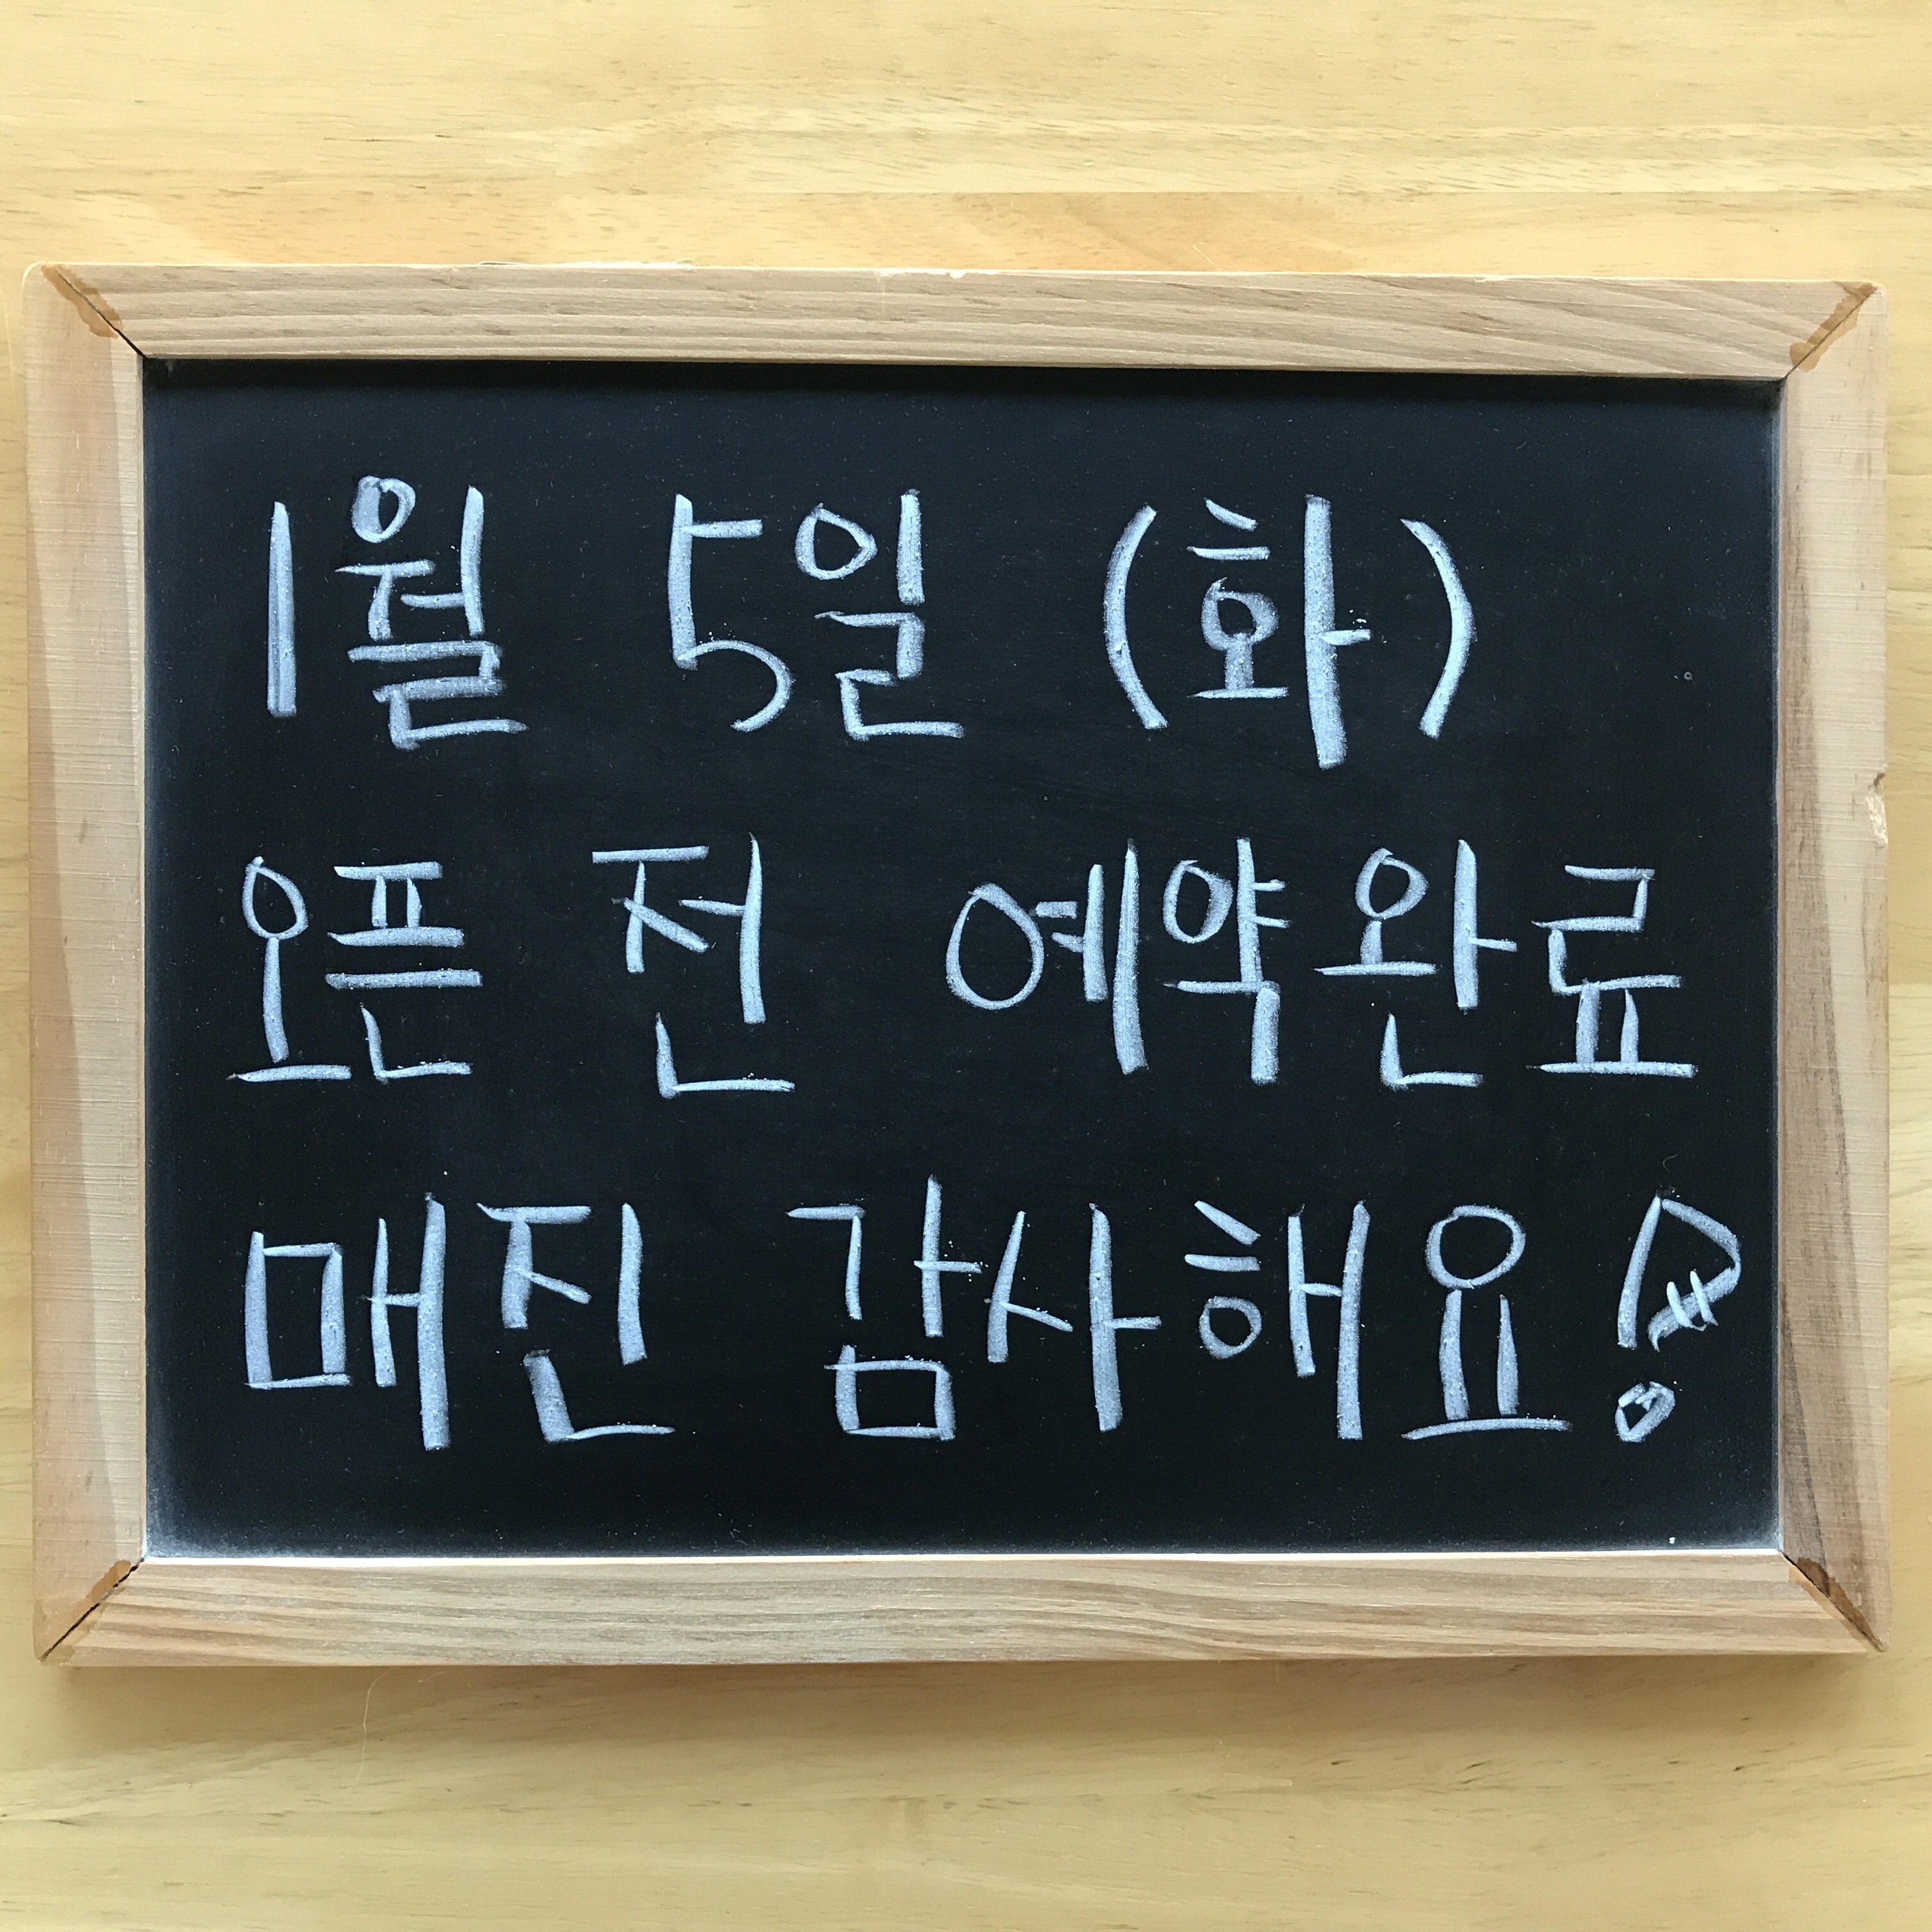 1월 5일 (화)
오픈 전 예약완료
매진 감사해요!